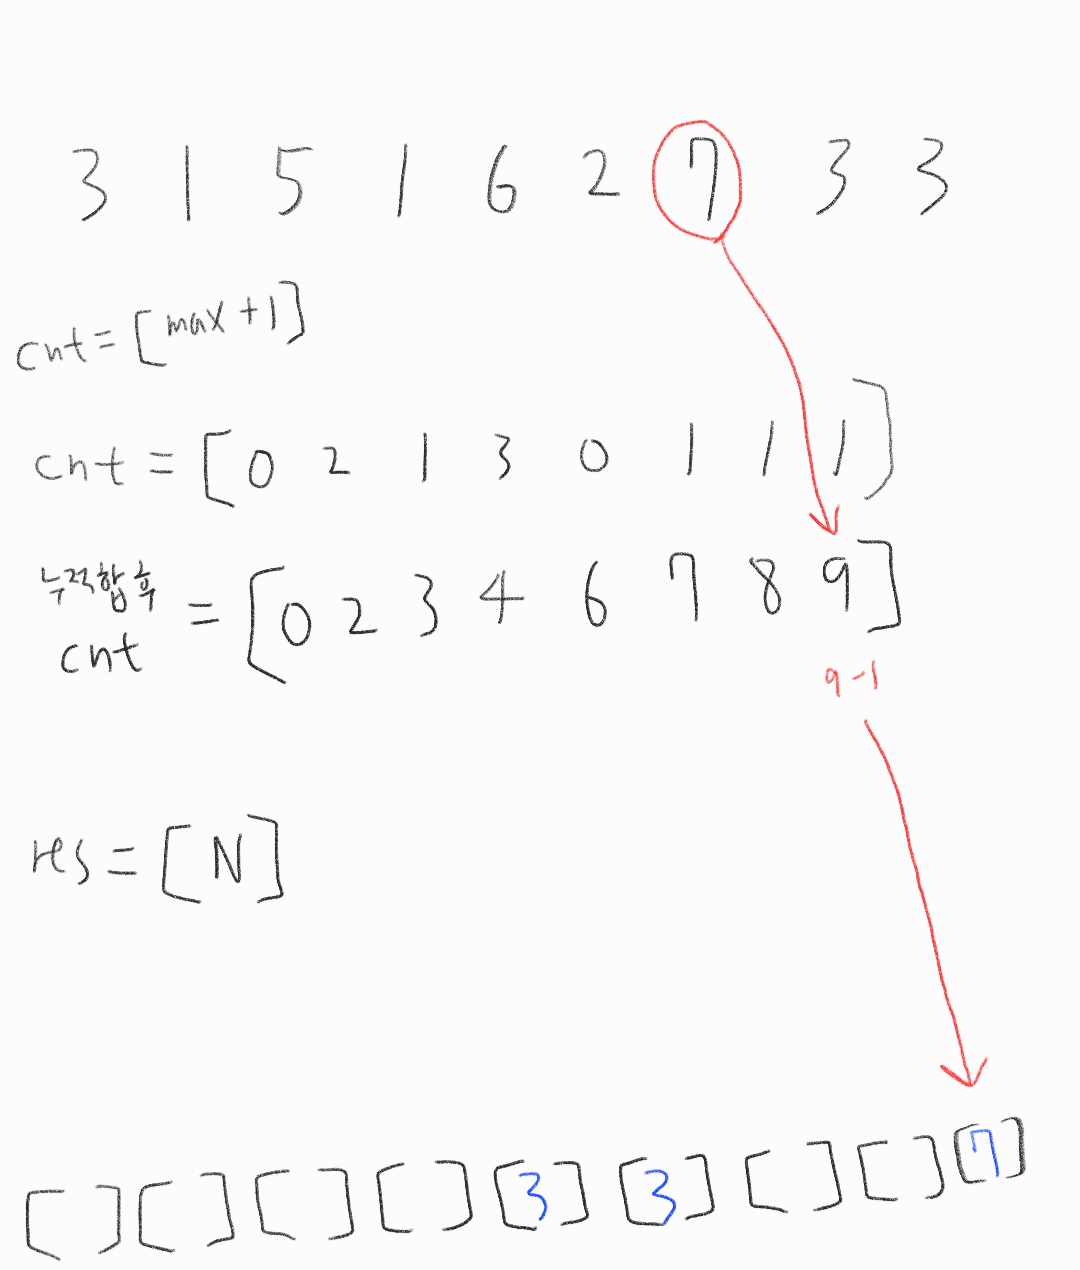 3 1 5 1 6 2 7 3 3
cnt = [max+1]
cnt = [0 2 1 3 0 1 1 1]
누적합 후
cnt = [0 2 3 4 6 7 8 9]
9-1
res = [N]
[ ] [ ] [ ] [ ] [3] [3] [ ] [ ] [7]